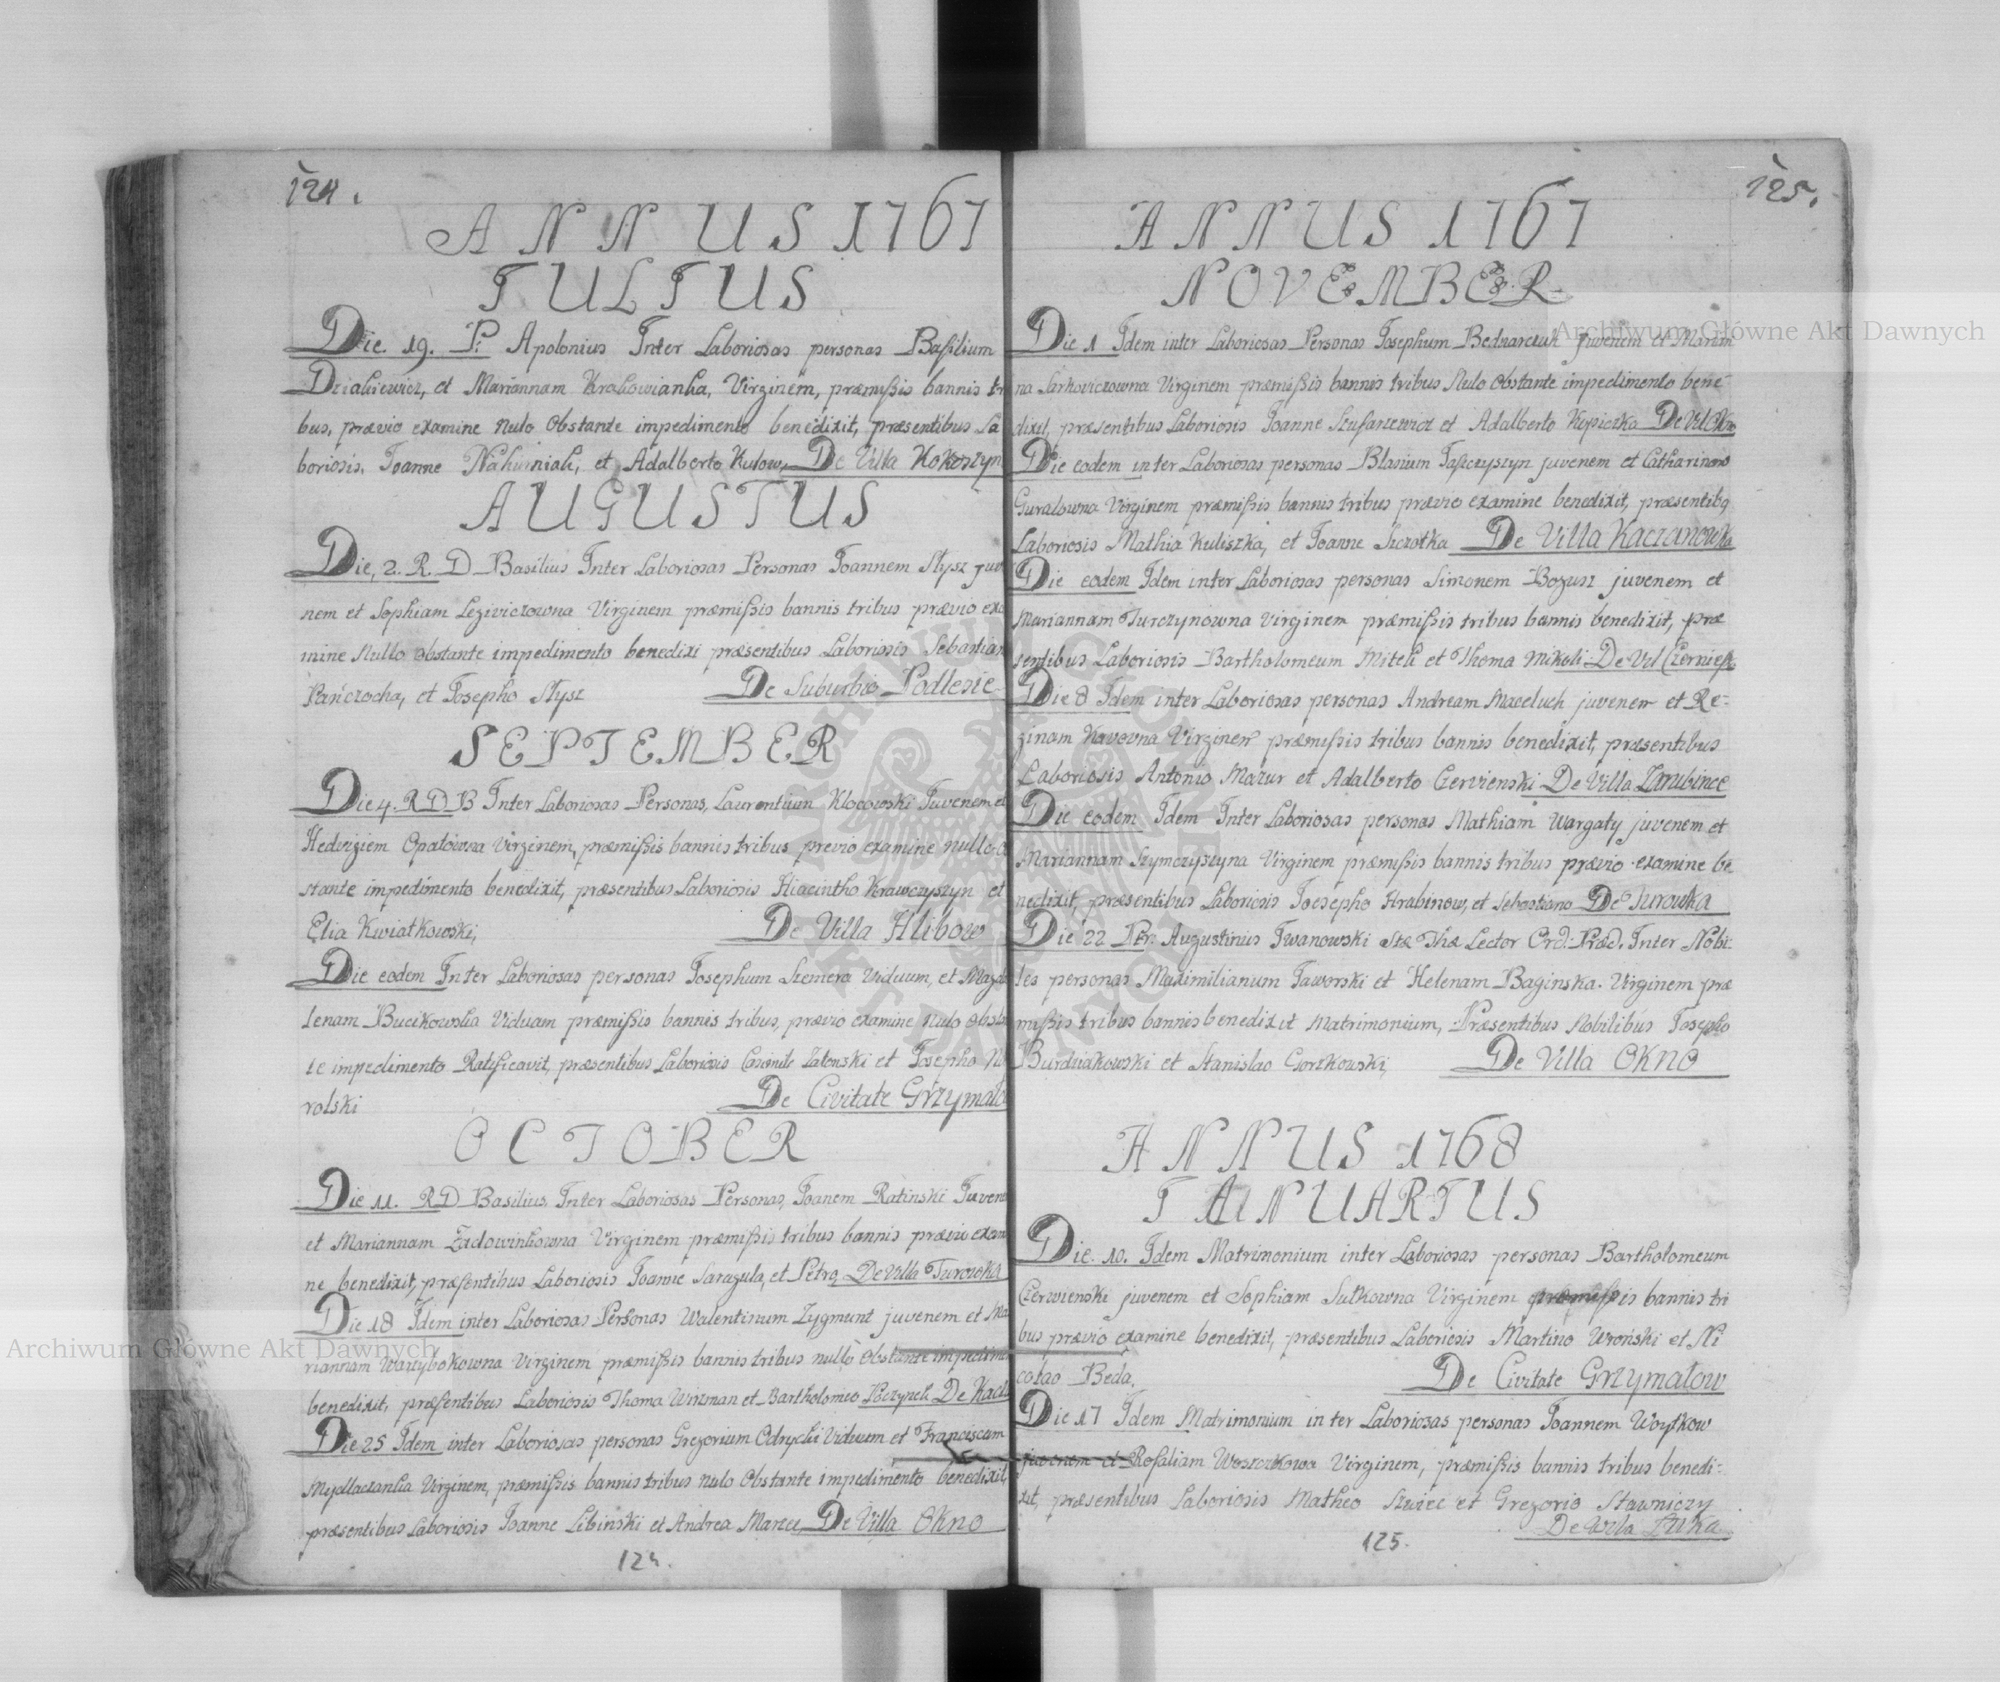 124.
ANNUS 1767
JULIUS
Die. 19. P: Apolonius Inter Laboriosas personas Basilium
Dziakiewicz, et Mariannam Krakowianka, Virginem, præmissis bannis tri
bus, prævio examine nulo Obstante impedimento benedixit, præsentibus La
boriosis, Joanne Nakurniak, et Adalberto Kulow, De Villa Kokoszyn
AUGUSTUS
Die, 2. R. D Basilius Inter Laboriosas Personas Joannem Stysz juv
nem et Sophiam Leziviczowna Virginem præmissis bannis tribus prævio exa
mine Nullo obstante impedimento benedixi præsentibus Laboriosis Sebastian
Panczocha, et Josepho Stysz De Suburbio Podlesie
SEPTEMBER
Die 4. R D B Inter Laboriosas Personas, Laurentium Klocowski Juvenem et
Hedvigiem Opatowna Virginem, præmissis bannis tribus previo examine nullo o
stante impedimento benedixit, præsentibus Laboriosis Hiacintho Krawczyszyn et
Elia Kwiatkowski, De Villa Hlibow
Die eodem Inter Laboriosas personas Josephum Szemera Viduum, et Magda
lenam Bucikowska Viduam præmissis bannis tribus, prævio examine nulo obsta
te impedimento Ratificavit, præsentibus Laboriosis Zatonski et Josepho
rolski De Civitate Grzymalo
OCTOBER
Die 11. RD Basilius, Inter Laboriosas Personas, Joanem Ratinski Juvene
et Mariannam Zadowinkowna Virginem præmissis tribus bannis prævio exam
ne benedixit, præsentibus Laboriosis Joanne Saragula, et Petro, De Villa Turowka
Die 18 Idem inter Laboriosas Personas Walentinum Zygmunt juvenem et Ma
riannam Wartybokowna Virginem præmissis bannis tribus nullo obstante impedime
benedixit, præsentibus Laboriosis Thoma Winman et Bartholomeo De Kacz
Die 25 Idem inter Laboriosas personas Gregorium Odrychi Viduum et Franciscam
Mydlaczanka Virginem, præmissis bannis tribus nulo Obstante impedimento benedixit,
præsentibus Laboriosis Joanne Libinski et Andrea Marzec, De Villa Okno
124.
125.
ANNUS 1767
NOVEMBER
Die 1 Idem inter Laboriosas Personas Josephum Bednarczuk Juvenem et Marian
na Sarkoviczowna Virginem præmissis bannis tribus Nulo Obstante impedimento bene-
dixit, præsentibus Laboriosis Joanne Szufaszewicz et Adalberto Kopiczka De Vil Okno
Die eodem inter Laboriosas personas Blasium Jaszczyszyn juvenem et Catharinam
Guralowna Virginem præmissis bannis tribus prævio examine benedixit, præsentibq
Laboriosis Mathia Kuliszka, et Joanne Szczotka De Villa Kaczanowka
Die eodem Idem inter Laboriosas personas Simonem Bogusz juvenem et
Mariannam Turczynowna Virginem præmissis tribus bannis benedixit, præ
sentibus Laboriosis Bartholomeum Miteli et Thoma Mikoli De Vil Czernisz
Die 8 Idem inter Laboriosas personas Andream Maceluch juvenem et Re-
ginam Kovevna Virginem præmissis tribus bannis benedixit, præsentibus
Laboriosis Antonio Mazur et Adalberto Czervienski De Villa Zarubince
Die eodem Idem Inter Laboriosas personas Mathiam Wargaty juvenem et
Mariannam Szymczyszyna Virginem præmissis bannis tribus prævio examine be
nedixit, præsentibus Laboriosis Joesepho Hrabinow, et Sebastiano De Turowka
Die 22 Pr. Augustinus Iwanowski Stæ Thæ Lector Ord: Præd. Inter Nobi-
les personas Maximilianum Jaworski et Helenam Baginska. Virginem præ
missis tribus bannis benedixit Matrimonium, Præsentibus Nobilibus Josepho
Burdziakowski et Stanislao Gorzkowski, De Villa Okno
ANNUS 1768
JANUARIUS
Die. 10. Idem Matrimonium inter Laboriosas personas Bartholomeum
Czerwienski juvenem et Sophiam Sutkowna Virginem præmissis bannis tri
bus prævio examine benedixit, præsentibus Laboriosis Martino Wronski et Ni
colao Beda, De Civitate Grzymalow
Die 17 Idem Matrimonium inter Laboriosas personas Joannem Woytkow
juvenem et Rosaliam Woszczkowa Virginem, præmissis bannis tribus benedi-
xit, præsentibus Laboriosis Matheo Szwiec et Gregorio Stawniczy
De Villa Luka
125.
Archiwum Główne Akt Dawnych
Archiwum Główne Akt Dawnych
ARCHIWUM GŁÓWNE AKT DAWNYCH